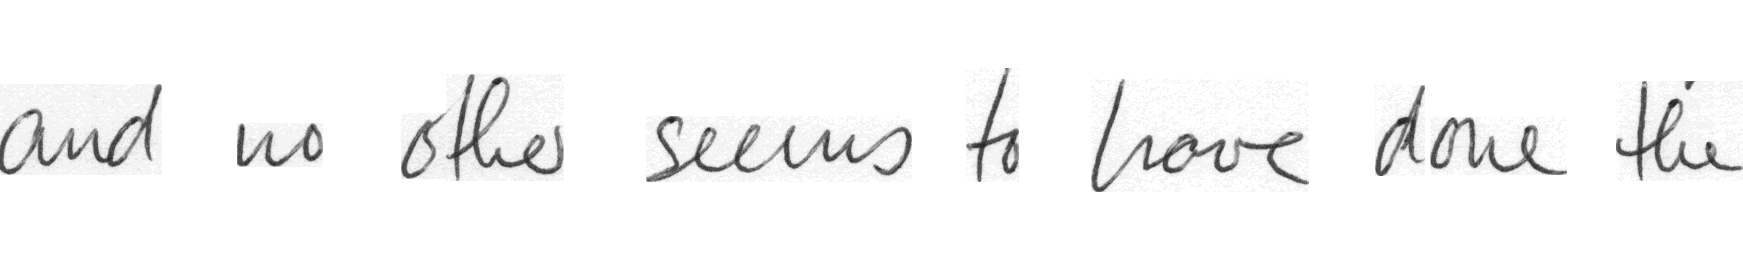 and no other seems to have done the